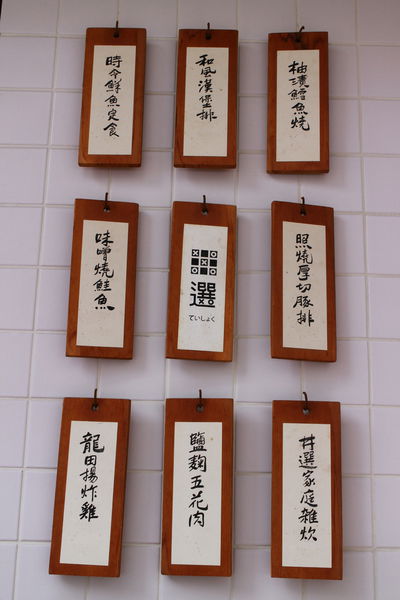 時令鮮魚定食
和風漢堡排
柚漬鱈魚燒
味噌燒鮭魚
選
ていしょく
照燒厚切豚排
龍田揚炸雞
鹽麴五花肉
丼選家庭雑炊